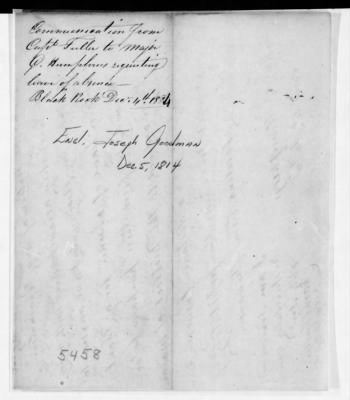 Communication from
Capt Fuller to Major
G. Humphrees requesting
leave of absence
Black Rock Dec. 4th 1814
Encl. Joseph Goodman
Dec 5, 1814
5458